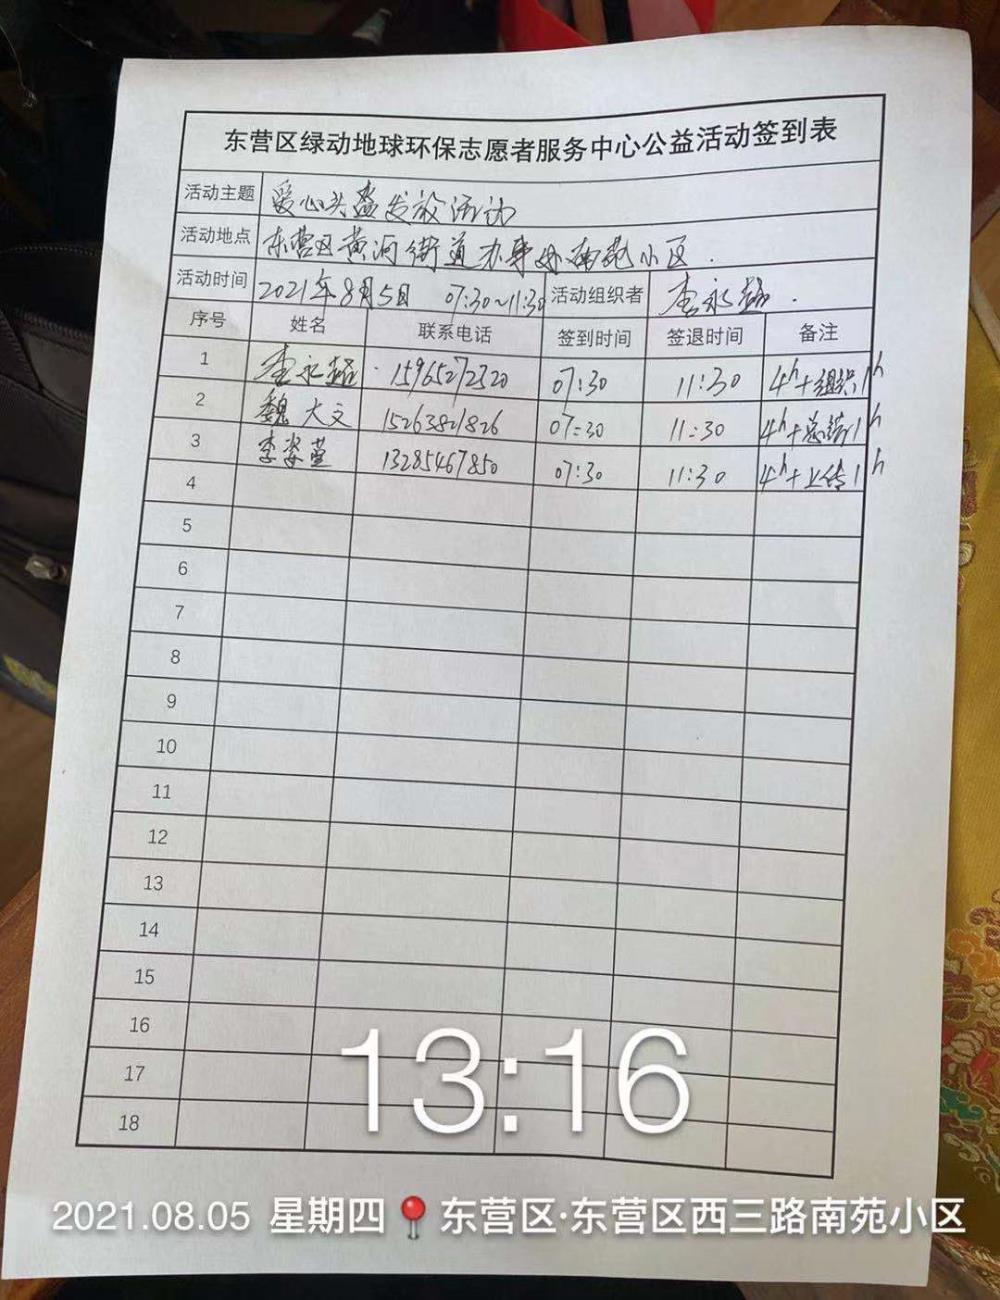 东营区绿动地球环保志愿者服务中心公益活动签到表
活动主题 爱心头盔发放活动
活动地点 东营区黄河街道办事处南苑小区.
活动时间 2021年8月5日 07:30~11:30 活动组织者 李永超.
序号 姓名 联系电话 签到时间 签退时间 备注
1 李永超 15965272320 07:30 11:30 4h+组织1h
2 魏大文 15263821826 07:30 11:30 4h+总结1h
3 李姿萱 13285467850 07:30 11:30 4h+上传1h
4
5
6
7
8
9
10
11
12
13
14
15
16
17
18
13:16
2021.08.05 星期四 东营区·东营区西三路南苑小区